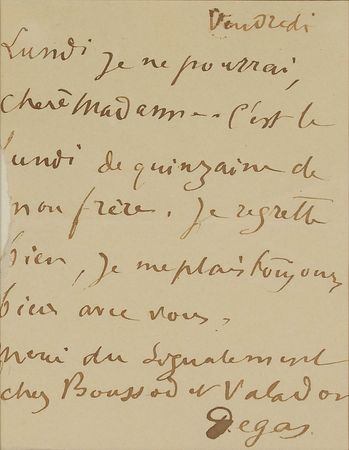 Vendredi
Lundi je ne pourrai,
chère Madame. C'est le
lundi de quinzaine de
mon frère. Je regrette
bien, je me plais toujours
bien avec vous.
Merci du signalement
chez Boussod et Valadon
Degas